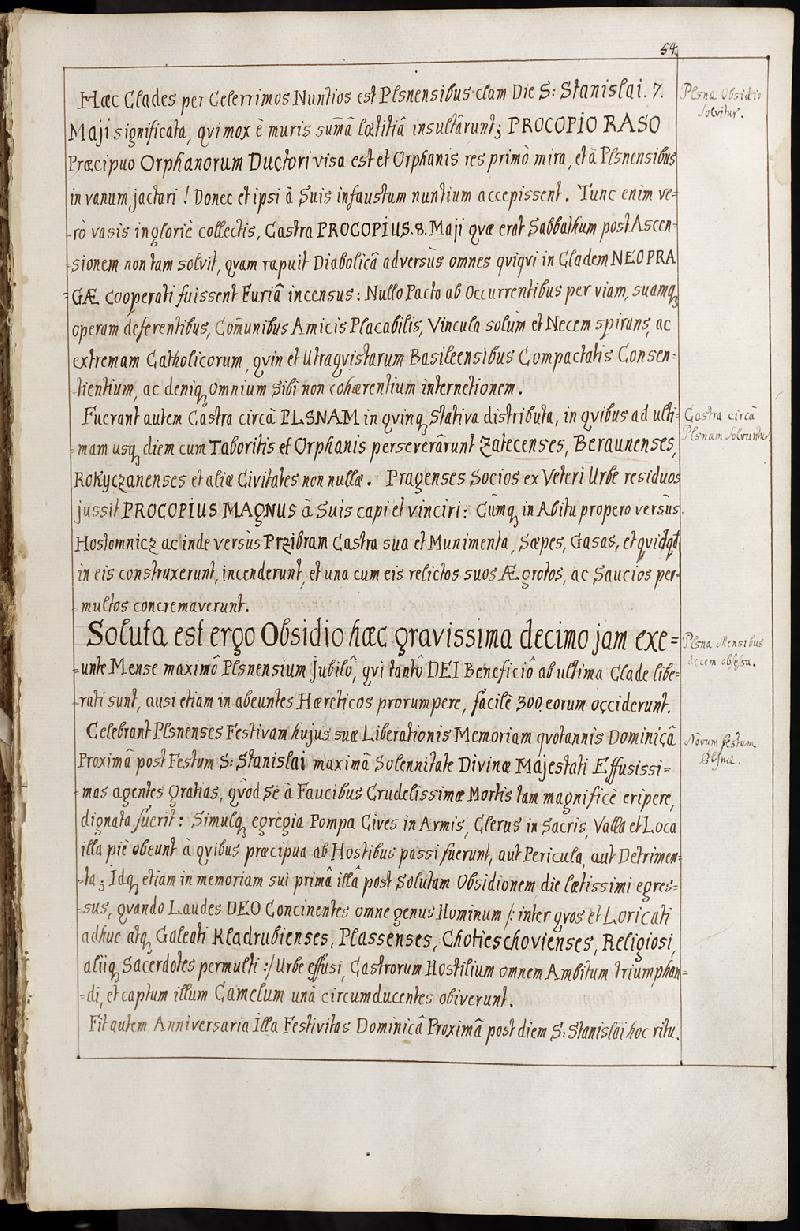 54
Hæc Clades per Celerrimos Nuntios est Plsnensibus clam Die S: Stanislai. 7.
Maji significata, qvi mox è muris sum̄â lætitiâ insultârunt; PROCOPIO RASO
Præcipuo Orphanorum Ductori visa est et Orphanis res primò mira, et à Plsnensibus
in vanum jactari! Donec et ipsi à Suis infaustum nuntium accepissent. Tunc enim ve-
-rò vasis inglorié collectis, Castra PROCOPIUS. 8. Maji qvæ erat Sabbathum post Ascen-
-sionem non tam solvit, qvam rapuit Diabolicâ adversùs omnes qviqvi in Cladem NEO PRA
GÆ Cooperati fuissent Furiâ incensus: Nullo Pacto ab Occurrentibus per viam, suamq̨
operam deferentibus, Com̄unibus Amicis Placabilis, Vincula solùm et Necem spirans, ac
extremam Catholicorum, qvin et Utraqvistarum Basileensibus Compactatis Consen-
tientium, ac deniq̨ Omnium Sibi non cohærentium internetionem.
Fuerant autem Castra circà PLSNAM in qvinq̨ Stativa distributa, in qvibus ad ulti-
-mam usq̨ diem cum Taboritis et Orphanis perseverârunt Zatecenses, Beraunenses,
Rokyczanenses et aliæ Civitates non nullæ. Pragenses Socios ex Veteri Urbe residuos
jussit PROCOPIUS MAGNUS à Suis capi et vinciri: Cùmq̨ in Abitu propero versùs
Hostomnicz ac inde versùs Przibram Castra sua et Munimenta, Sæpes, Casas, et qvidqd
in eis construxerunt, incenderunt, et una cum eis relictos suos Ægrotos, ac Saucios per-
-multos concremaverunt.
Soluta est ergo Obsidio hæc gravissima decimo jam exe-
-unte Mense maximô Plsnensium Jubilô, qvi tantô DEI Beneficiô ab ultima Clade libe-
rati sunt, ausi etiam in abeuntes Hæreticos prorumpere, facilè 300 eorum occiderunt.
Celebrant Plsnenses Festivam hujus suæ Liberationis Memoriam qvotannis Dominicâ
Proximâ post Festum S: Stanislai maximâ Solennitate Divinæ Majestati Effusissi-
mas agentes gratias, qvòd Se à Faucibus Crudelissimæ Mortis tam magnificè eripere,
dignata fuerit: Simulq̨ egregia Pompa Cives in Armis, Clerus in Sacris, Valla et Loca
illa piè obeunt à qvibus præcipua ab Hostibus passi fuerunt, aut Pericula, aut Detrimen-
-ta; Idq̨ etiam in memoriam sui primâ illâ post Solutam Obsidionem die lætissimi egres-
-sus, qvando Laudes DEO Concinentes omne genus Hominum /: inter qvos et Loricati
adhuc atq̨ Galeati Kladrubienses, Plassenses, Chotieschovienses, Religiosi,
aliiq̨ Sacerdotes permulti :/ Urbe effusi, Castrorum Hostilium omnem Ambitum triumphan-
-di, et captum illum Camelum unà circumducentes obiverunt.
Fit autem Anniversaria Illa Festivitas Dominicâ Proximâ post diem S: Stanislai hoc ritu.
Plsna Obsidio
solvitur.
Castra circà
Plsnam solvuntur
Plsna Mensibus
decem obsessa.
Novum festum
Plsnæ.